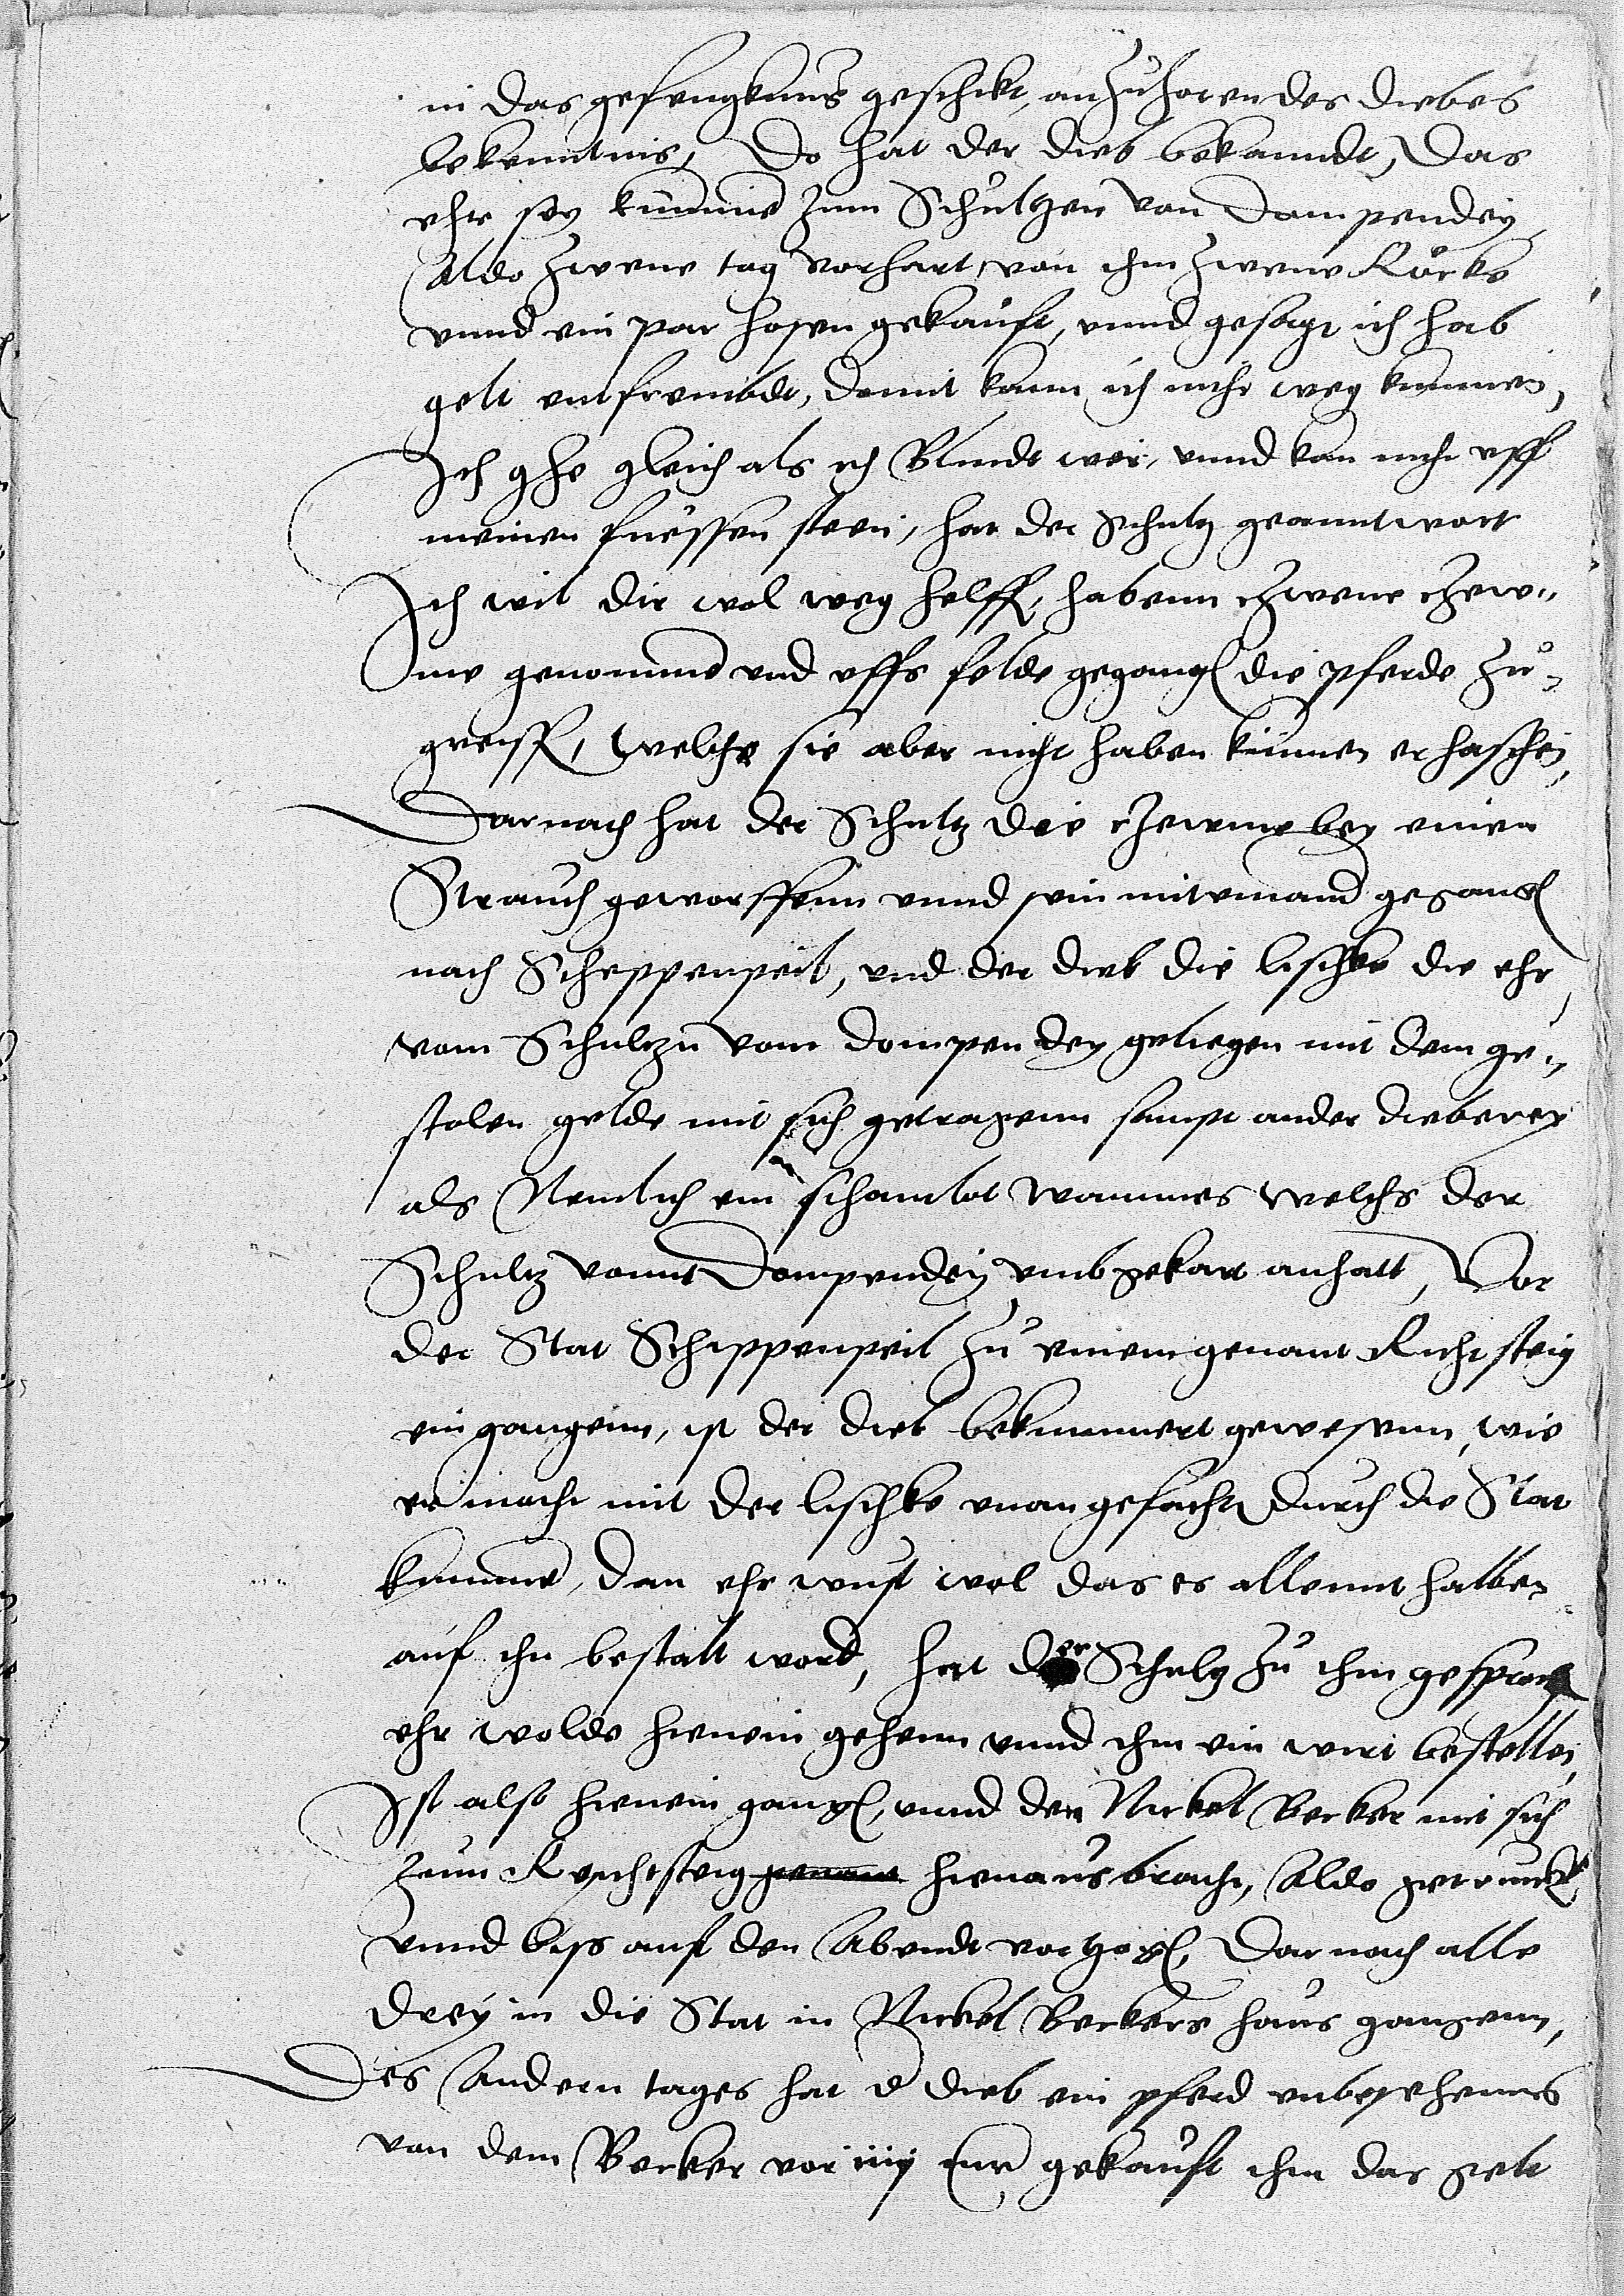 in das gefengknus geschikt, anzuhoren des diebes
bekentnis, Do hat der dieb bekanndt, Das
ehr sey kummen zum Schultzen von Dompendey
Aldo zwene tag vorhart, von ihm zwene Röcke
vnnd ein par hosen gekauft, vnnd gesagt ich hab
gelt entfrembdt, domit kann ich nicht weg kummen,
Ich ghe gleich als ich Blindt wer, vnnd kan nicht vff
meinen fuessen steen, hat der Schultz geanntwort
Ich wil dir wol weg helff, habenn zwene zew-
me genommen vnd vffs felde gegangen die pferde zu-
greiff, welche sie aber nicht haben kunnen erhaschen,
Darnach hat der Schultz die zewme bey einen
Strauch geworffenn vnnd sein mit einand gegangen
nach Scheppenpeil, vnd der dieb die lischke die ehr
vom Schultzn vom dompendey geliegen mit dem ge-
stolen gelde mit sich getragenn sampt ander dieberey
als Nemlich ein schamlot wammes welchs der
Schultz vonn Dompendey vmbgekart anhatt, Vor
der Stat Scheppenpeil zu einem genant Richtsteig
eingangenn, ist der dieb bekummert gewesenn, wie
er mocht mit der lischke vnangefacht durch die Stat
kummen, dan ehr wust wol das es allennt halben
auf ihn bestalt word, hat der Schultz zu ihm gesproch
ehr wolde hienein gehenn vnnd ihm ein wirt bestellen,
Ist also hienein gangen, vnnd den Nickel Becker mit sich
zum Rychtsteig genant hienaus bracht, Aldo getrunken
vnnd biss auf den Abendt vorzogen, Darnach alle
drey in die Stat in Nickel Beckers haus gangenn,
Des Andern tages hat d dieb ein pferd vnbesehenns
von dem Becker vor iiij mr gekauft ihm das gelt